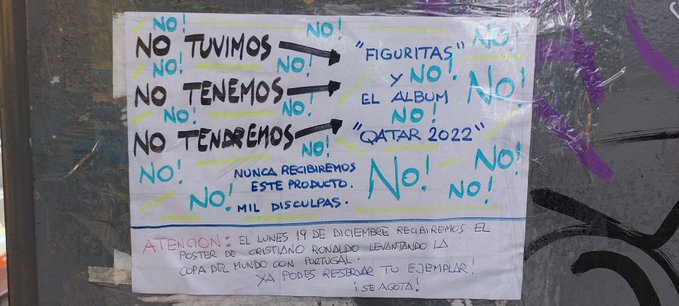 NO! NO! NO! NO!
NO TUVIMOS → "FIGURITAS" NO!
NO! NO! Y NO!
NO TENEMOS → EL ALBUM NO!
NO! NO! NO!
NO TENDREMOS → "QATAR 2022"
NO! NO! NO!
NO! NUNCA RECIBIREMOS NO! NO!
ESTE PRODUCTO.
NO! MIL DISCULPAS.
ATENCION: EL LUNES 19 DE DICIEMBRE RECIBIREMOS EL
POSTER DE CRISTIANO RONALDO LEVANTANDO LA
COPA DEL MUNDO CON PORTUGAL.
YA PODES RESERVAR TU EJEMPLAR!
¡SE AGOTA!